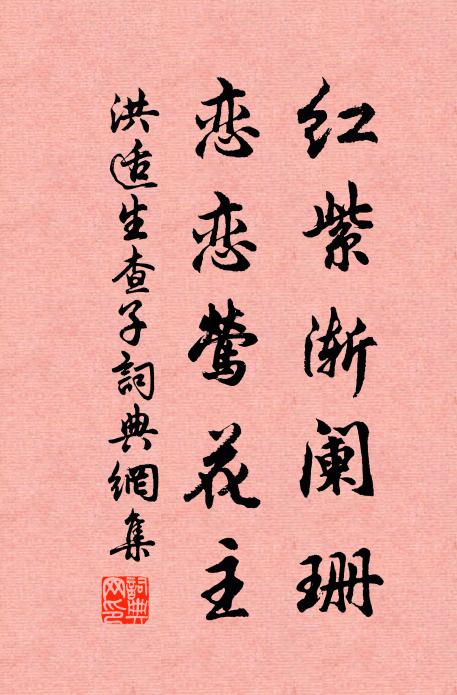 红紫渐阑珊
恋恋莺花主
洪适生查子詞典網集
詞典网印